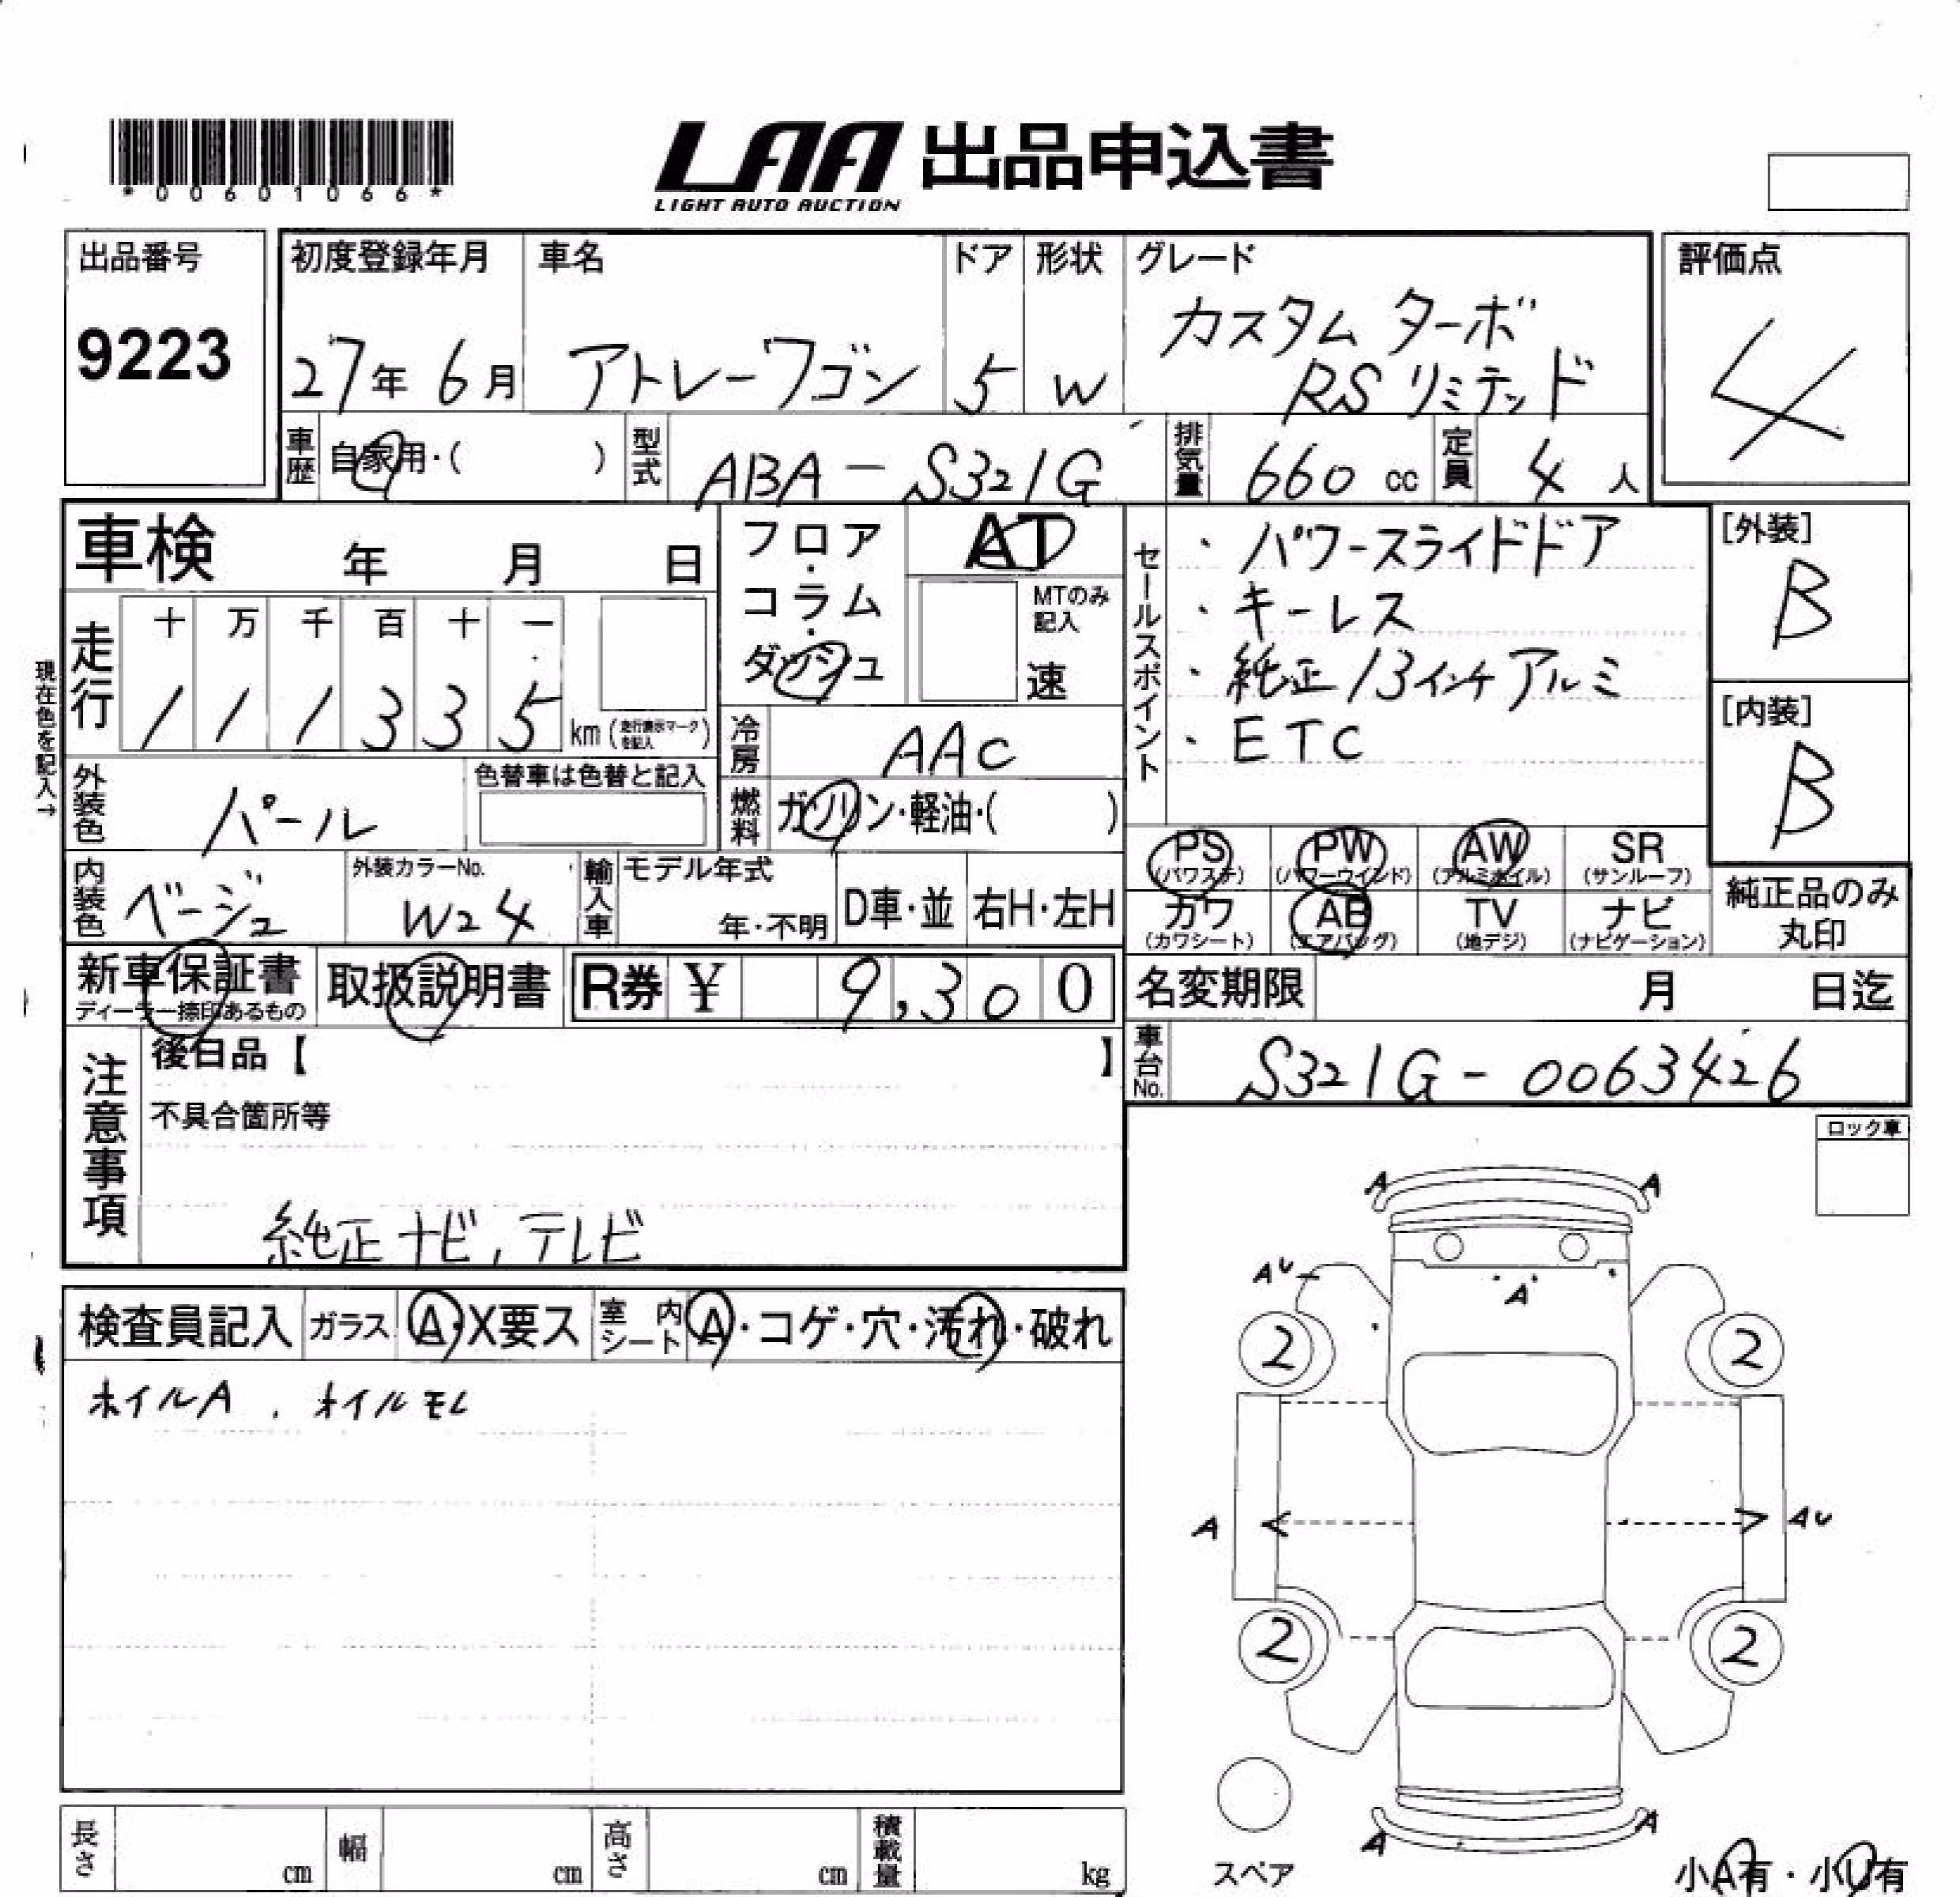 *00601066*
LAA 出品申込書
LIGHT AUTO AUCTION
出品番号
9223
初度登録年月
27年6月
車名
アトレーワゴン
ドア
5
形状
W
グレード
カスタム ターボ
RSリミテッド
評価点
4
車歴
自家用・( )
型式
ABA-S321G
排気量
660 cc
定員
4人
車検 年 月 日
フロア・コラム・ダッシュ
AT
MTのみ記入
速
セールスポイント
・パワースライドドア
・キーレス
・純正13インチアルミ
・ETC
[外装]
B
[内装]
B
現在色を記入→
走行
十 万 千 百 十 一
1 1 1 3 3 5
km (走行表示マークを記入)
冷房
AAC
燃料
ガソリン・軽油・( )
外装色
パール
色替車は色替と記入
内装色
ベージュ
外装カラーNo.
W24
輸入車
モデル年式
年・不明
D車・並
右H・左H
PS (パワステ)
PW (パワーウインド)
AW (アルミホイル)
SR (サンルーフ)
カワ (カワシート)
AB (エアバッグ)
TV (地デジ)
ナビ (ナビゲーション)
純正品のみ
丸印
新車保証書
ディーラー捺印あるもの
取扱説明書
R券 ¥ 9,300
名変期限 月 日迄
車台No.
S321G-0063426
注意事項
後日品【 】
不具合箇所等
純正ナビ,テレビ
ロック車
検査員記入
ガラス
A・X要ス
室内シート
A・コゲ・穴・汚れ・破れ
ホイルA、オイルモレ
A A
AU
A
2 2
A AU
2 2
A A
スペア
小A有・小U有
長さ cm
幅 cm
高さ cm
積載量 kg